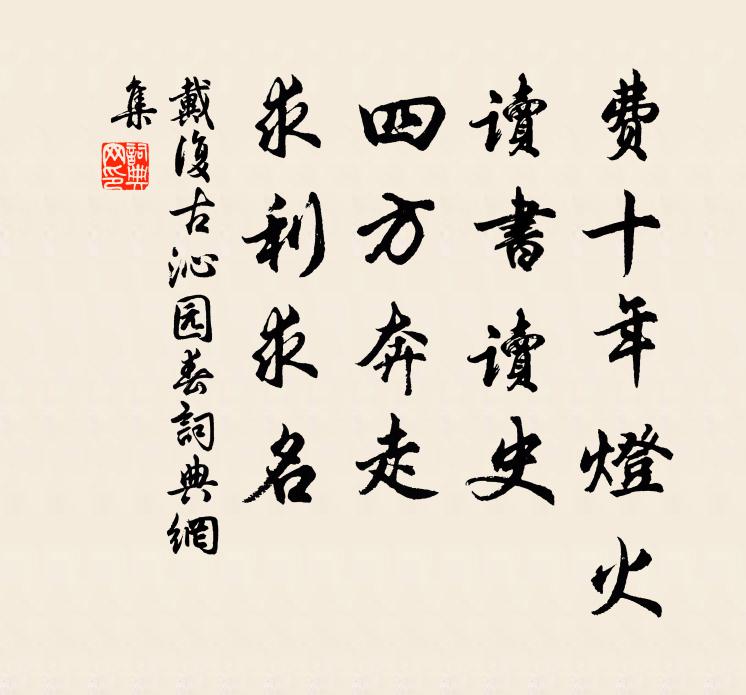 费十年燈火
讀書讀史
四方奔走
求利求名
戴復古沁园春詞典網
集
詞典
网印